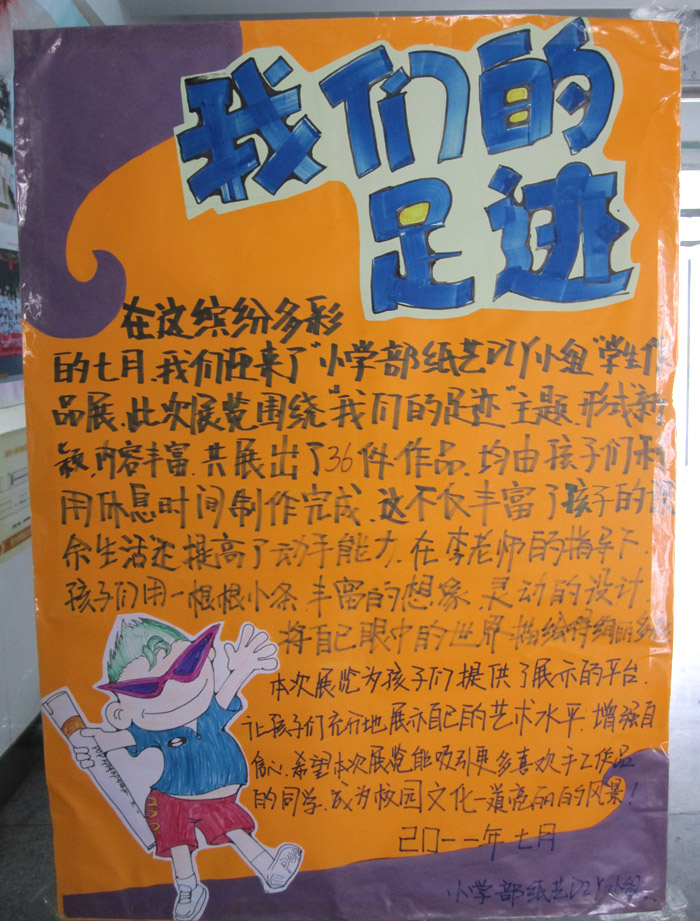 我们的
足迹
在这缤纷多彩
的七月,我们迎来了“小学部纸艺DIY小组”学生作
品展.此次展览围绕“我们的足迹”主题.形式新
颖,内容丰富.共展出了36件作品.均由孩子们利
用休息时间制作完成.这不仅丰富了孩子的课
余生活还提高了动手能力.在李老师的指导下.
孩子们用一根根小条.丰富的想象.灵动的设计.
将自己眼中的世界描绘得绚丽多彩
本次展览为孩子们提供了展示的平台.
让孩子们充分地展示自己的艺术水平.增强自
信心.希望本次展览能吸引更多喜欢手工作品
的同学.成为校园文化一道亮丽的风景!
二〇一一年七月
小学部纸艺DIY小组